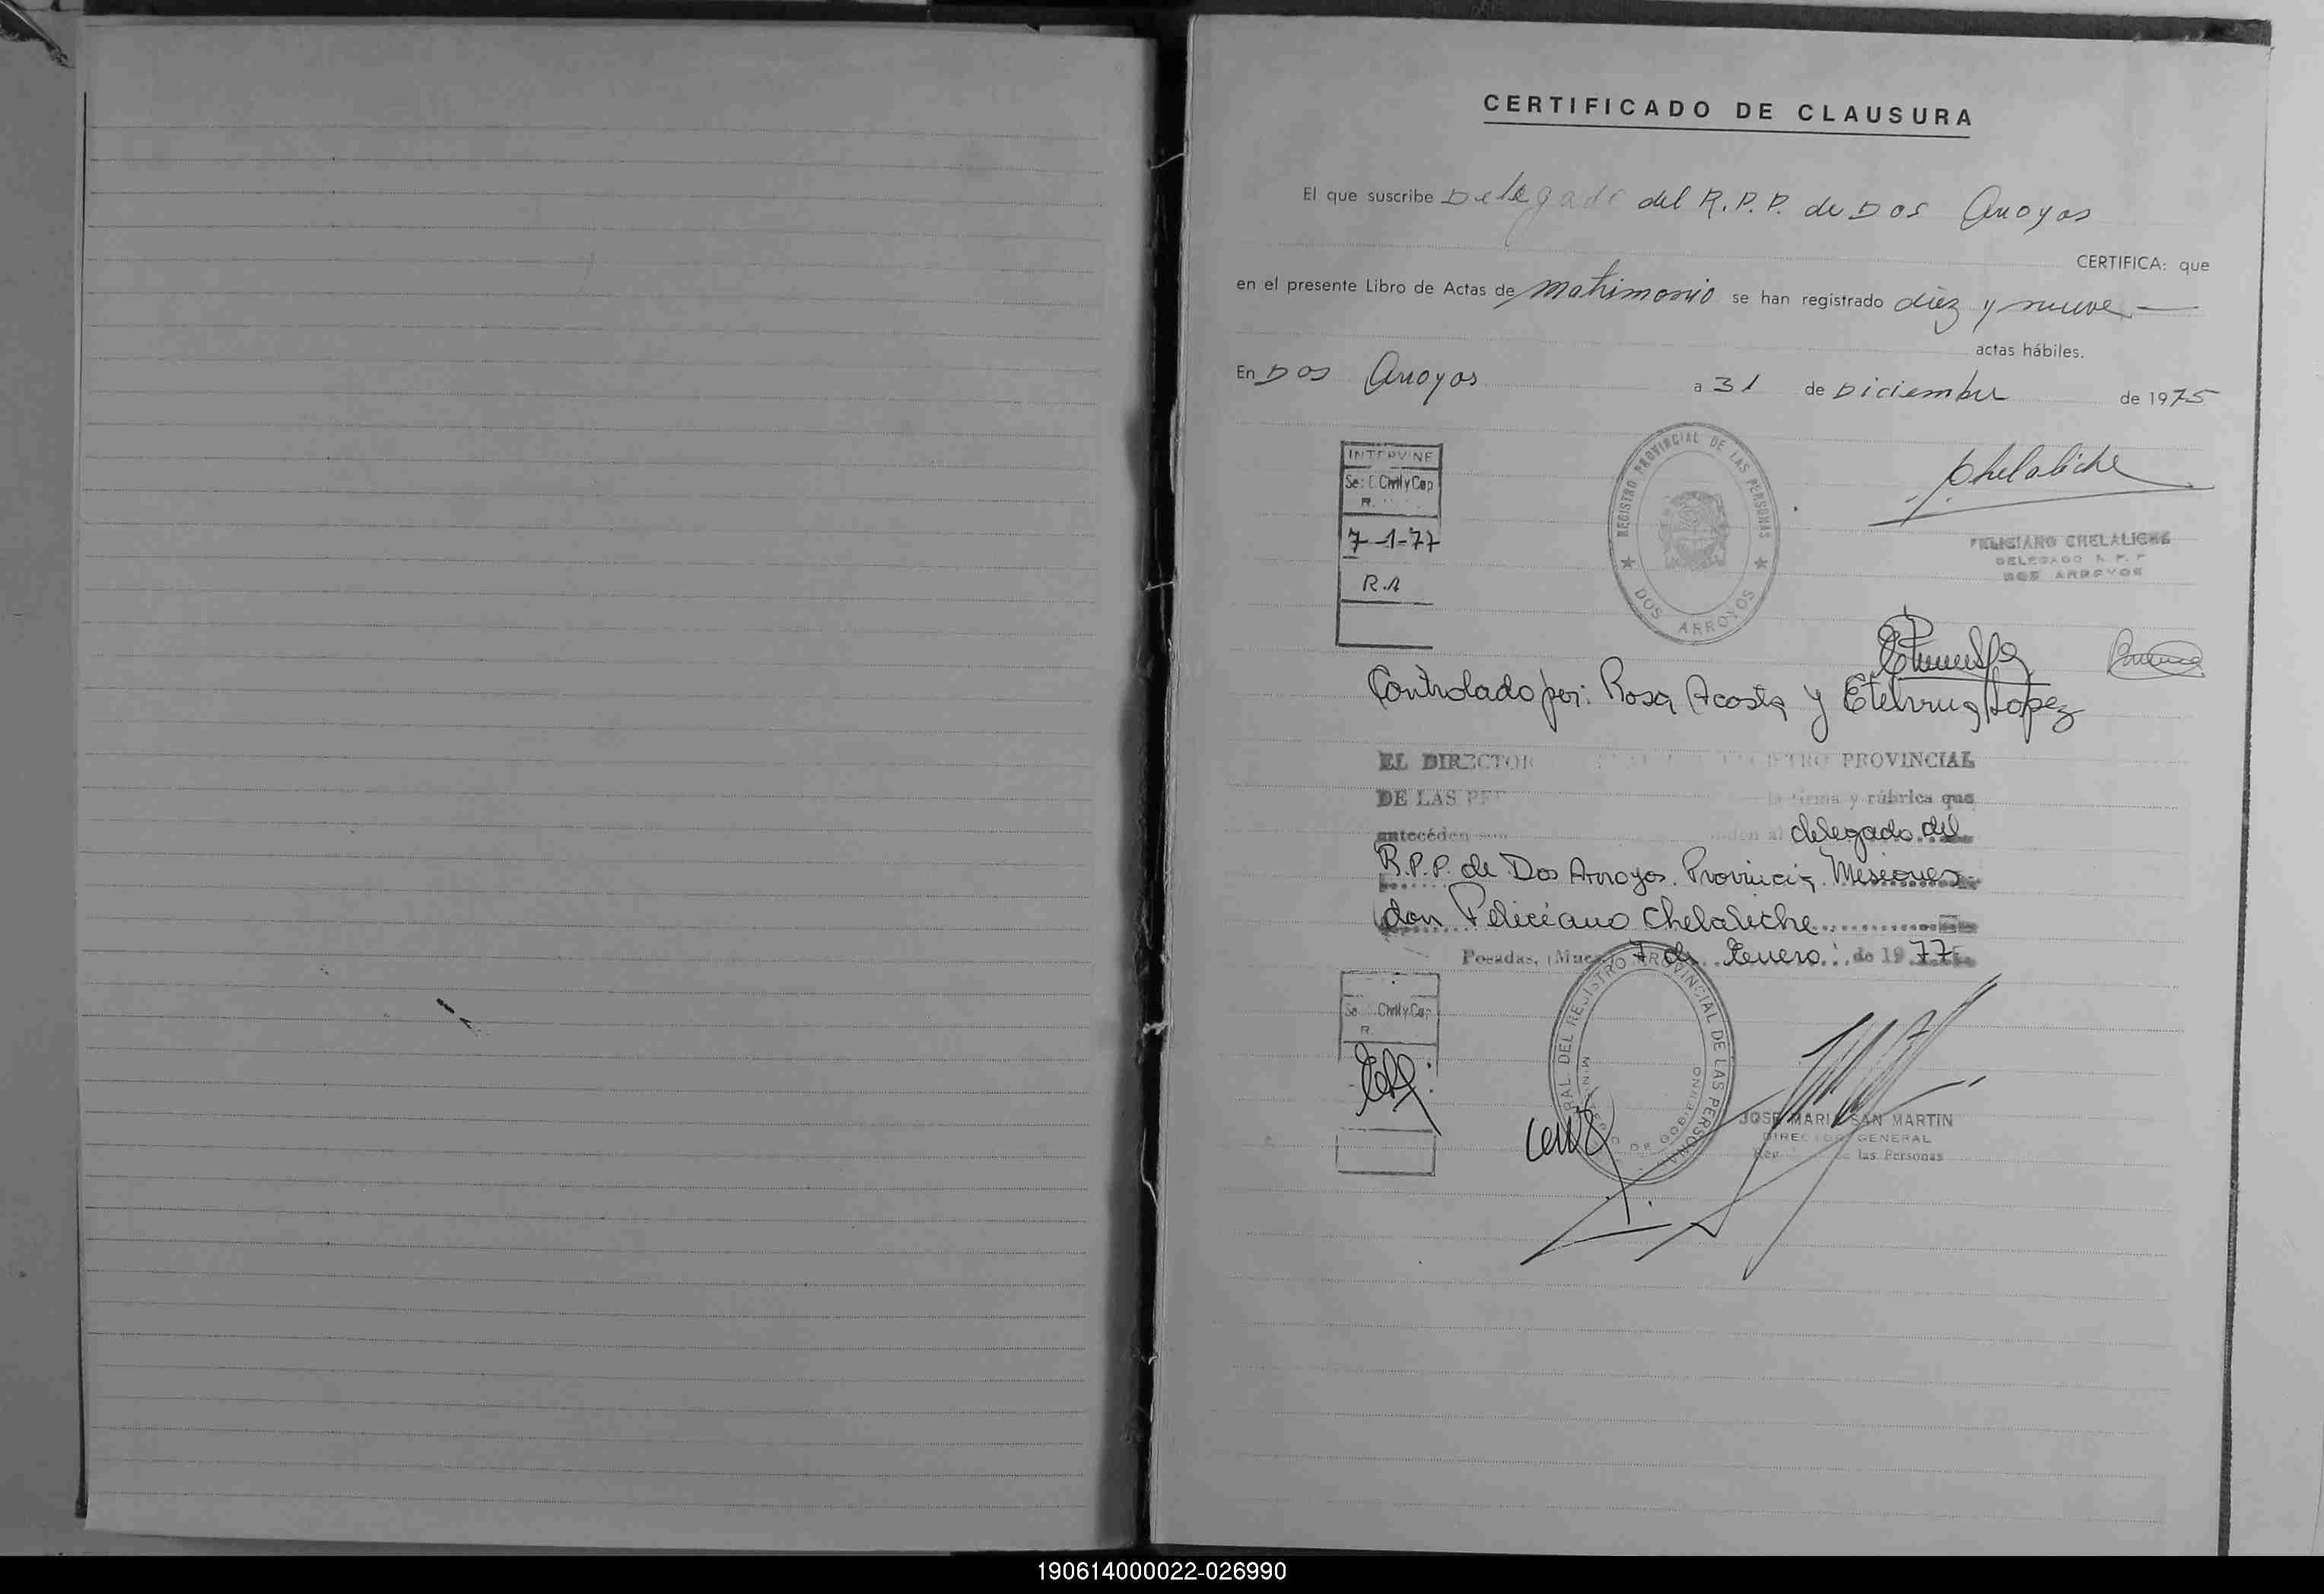 CERTIFICADO DE CLAUSURA
El que suscribe Delegado del R.P.P. de Dos Arroyos
CERTIFICA: que
en el presente Libro de Actas de matrimonio se han registrado diez y nueve —
actas hábiles.
En Dos Arroyos a 31 de Diciembre de 1975
INTERVINE
Civil y Cap
R.
7-1-77
R.A
REGISTRO PROVINCIAL DE LAS PERSONAS
★ DOS ARROYOS ★
Chelaliche
FELICIANO CHELALICHE
DELEGADO R. P. P.
DOS ARROYOS
Controlado por: Rosa Acosta y Etelvina Lopez
EL DIRECTOR PROVINCIAL
DE LAS la firma y rúbrica que
anteceden son al delegado del
R.P.P. de Dos Arroyos. Provincia Misiones
don Feliciano Chelaliche
Posadas, 7 de Enero de 1977
Civil y Cap
R.
DEL REGISTRO PROVINCIAL DE LAS PERSONAS
DE GOBIERNO
JOSE MARIA SAN MARTIN
DIRECTOR GENERAL
Reg. de las Personas
190614000022-026990